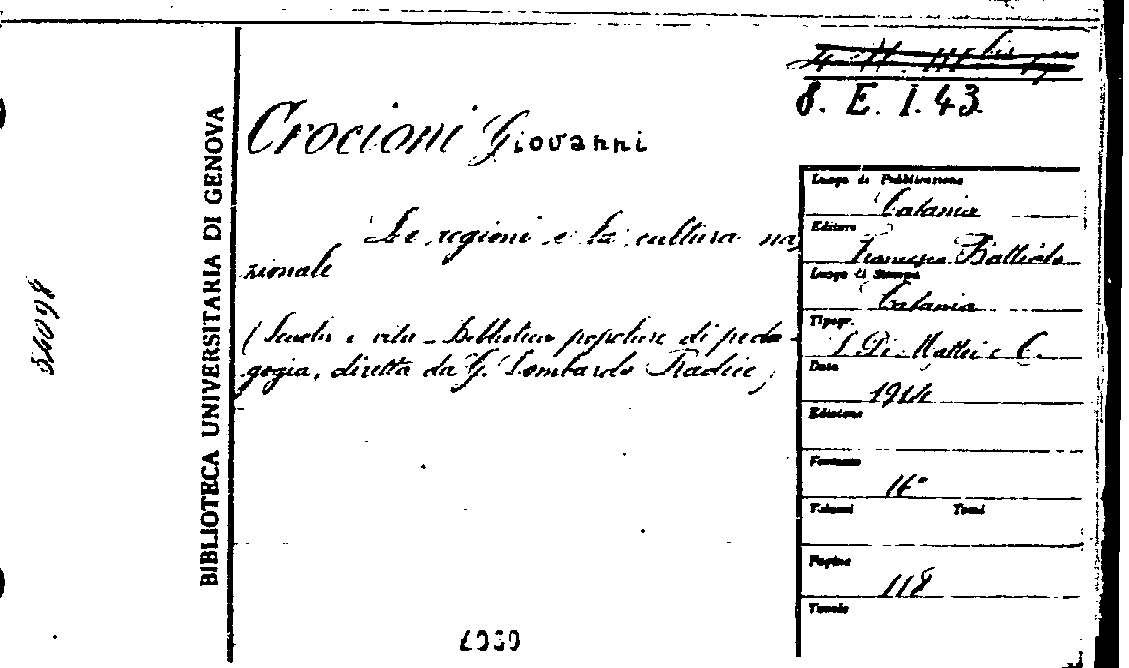 8. E. I. 43
Crocioni Giovanni
Le regioni e la cultura na-
zionale
(Scuola e vita - Biblioteca popolare di peda-
gogia, diretta da G. Lombardo Radice)
BIBLIOTECA UNIVERSITARIA DI GENOVA
Luogo di Pubblicazione
Catania
Editore
Francesco Battiato
Luogo di Stampa
Catania
Tipogr.
S. Di Mattei e C.
Data
1914
Edizione
Formato
16°
Volumi Tomi
Pagine
118
Tavole